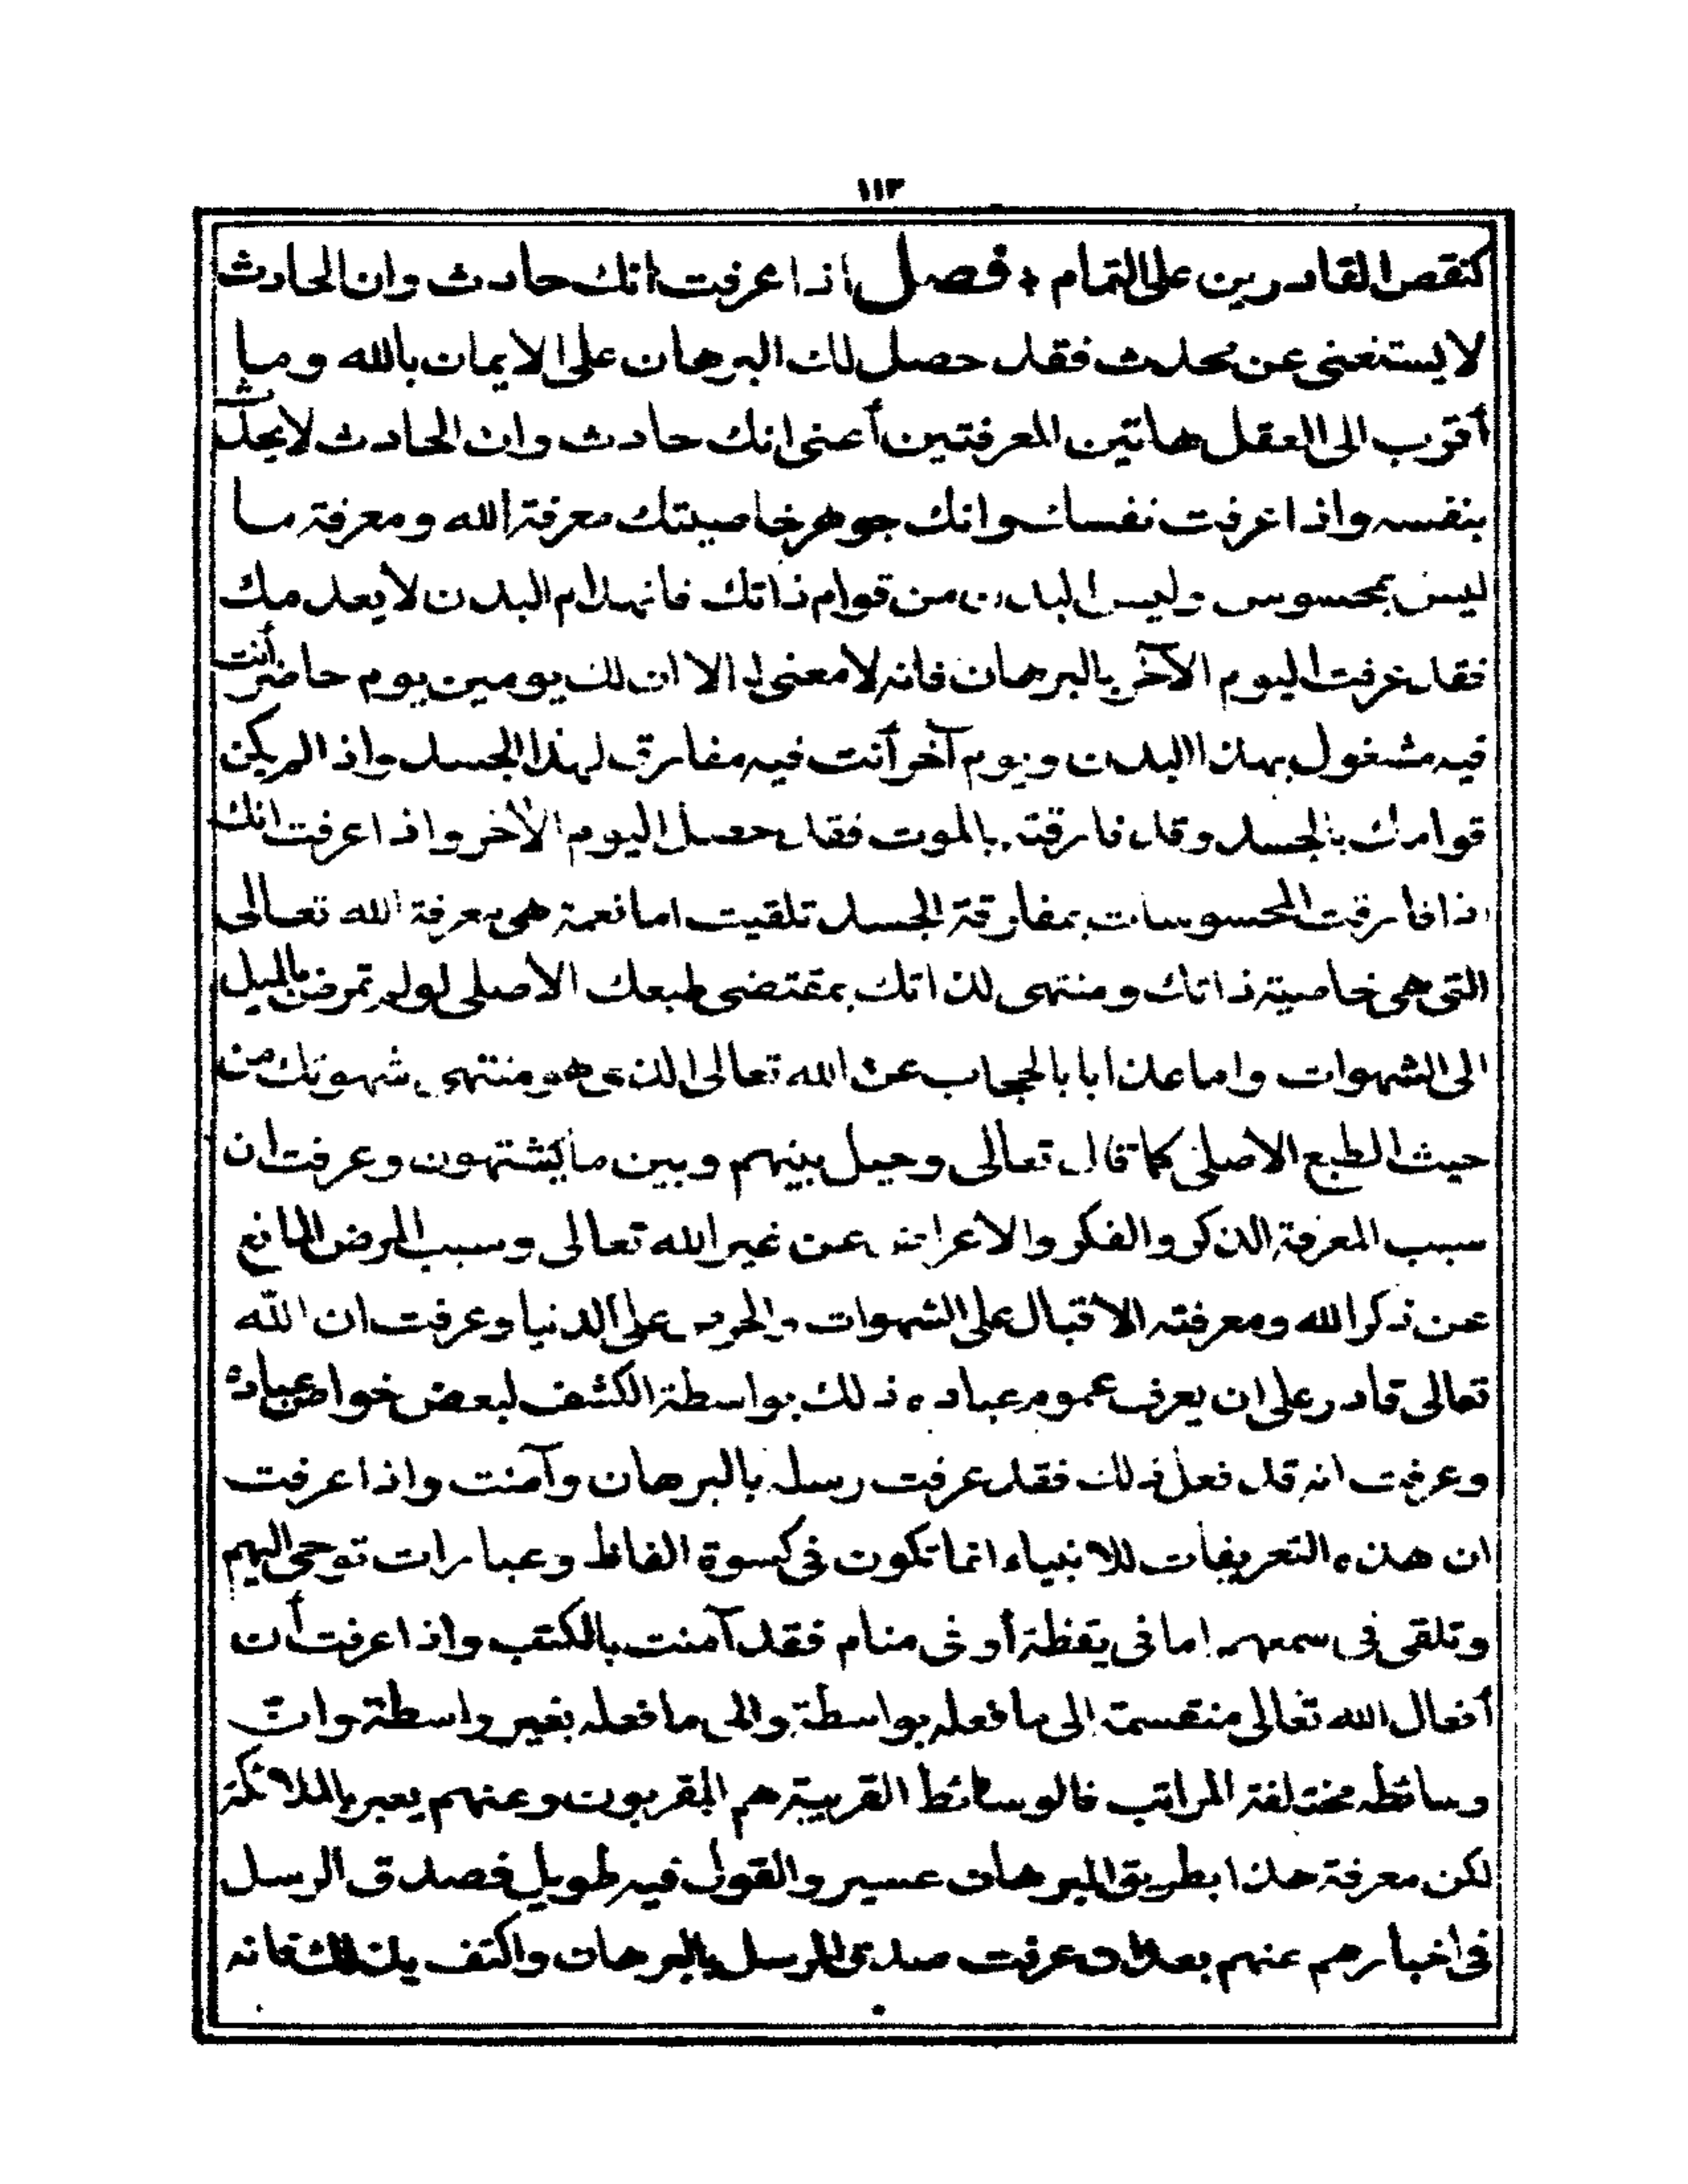 ١١٣
كنقص القادرين على التمام * فصل اذا عرفت انك حادث وان الحادث
لا يستغنى عن محدث فقد حصل لك البرهان على الايمان بالله وما
أقرب الى العقل هاتين المعرفتين أعنى انك حادث وان الحادث لا يحدث
بنفسه واذا عرفت نفسك وانك جوهر خاصيتك معرفة الله ومعرفة ما
ليس بمحسوس وليس البدن من قوام ذاتك فانهدام البدن لا يعدمك
فقد عرفت اليوم الآخر بالبرهان فانه لا معنى له الا ان لك يومين يوم حاضر أنت
فيه مشغول بهذا البدن ويوم آخر أنت فيه مفارق لهذا الجسد واذا لم يكن
قوامك بالجسد وقد فارقته بالموت فقد حصل اليوم الآخر واذا عرفت انك
اذا فارقت المحسوسات بمفارقة الجسد تلقيت اما نعمة هى معرفة الله تعالى
التى هى خاصية ذاتك ومنتهى لذاتك بمقتضى طبعك الأصلى لو لم تمرض بالميل
الى الشهوات واما عذابا بالحجاب عن الله تعالى الذى هو منتهى شهوتك من
حيث الطبع الاصلى كما قال تعالى وحيل بينهم وبين ما يشتهون وعرفت ان
سبب المعرفة الذكر والفكر والاعراض عن غير الله تعالى وسبب المرض المانع
عن ذكر الله ومعرفته الاقبال على الشهوات والحرص على الدنيا وعرفت ان الله
تعالى قادر على ان يعرف عموم عباده ذلك بواسطة الكشف لبعض خواص عباده
وعرفت انه قد فعل ذلك فقد عرفت رسله بالبرهان وآمنت واذا عرفت
ان هذه التعريفات للانبياء انما تكون فى كسوة الفاظ وعبارات توحى اليهم
وتلقى فى سمعهم اما فى يقظة أو فى منام فقد آمنت بالكتب واذا عرفت أن
أفعال الله تعالى منقسمة الى ما فعله بواسطة والى ما فعله بغير واسطة وان
وسائطه مختلفة المراتب فالوسائط القريبة هم المقربون وعنهم يعبر بالملائكة
لكن معرفة هذا بطريق البرهان عسير والقول فيه طويل فصدق الرسل
فى اخبارهم عنهم بعد ان عرفت صدق الرسل بالبرهان واكتف بذلك فانه